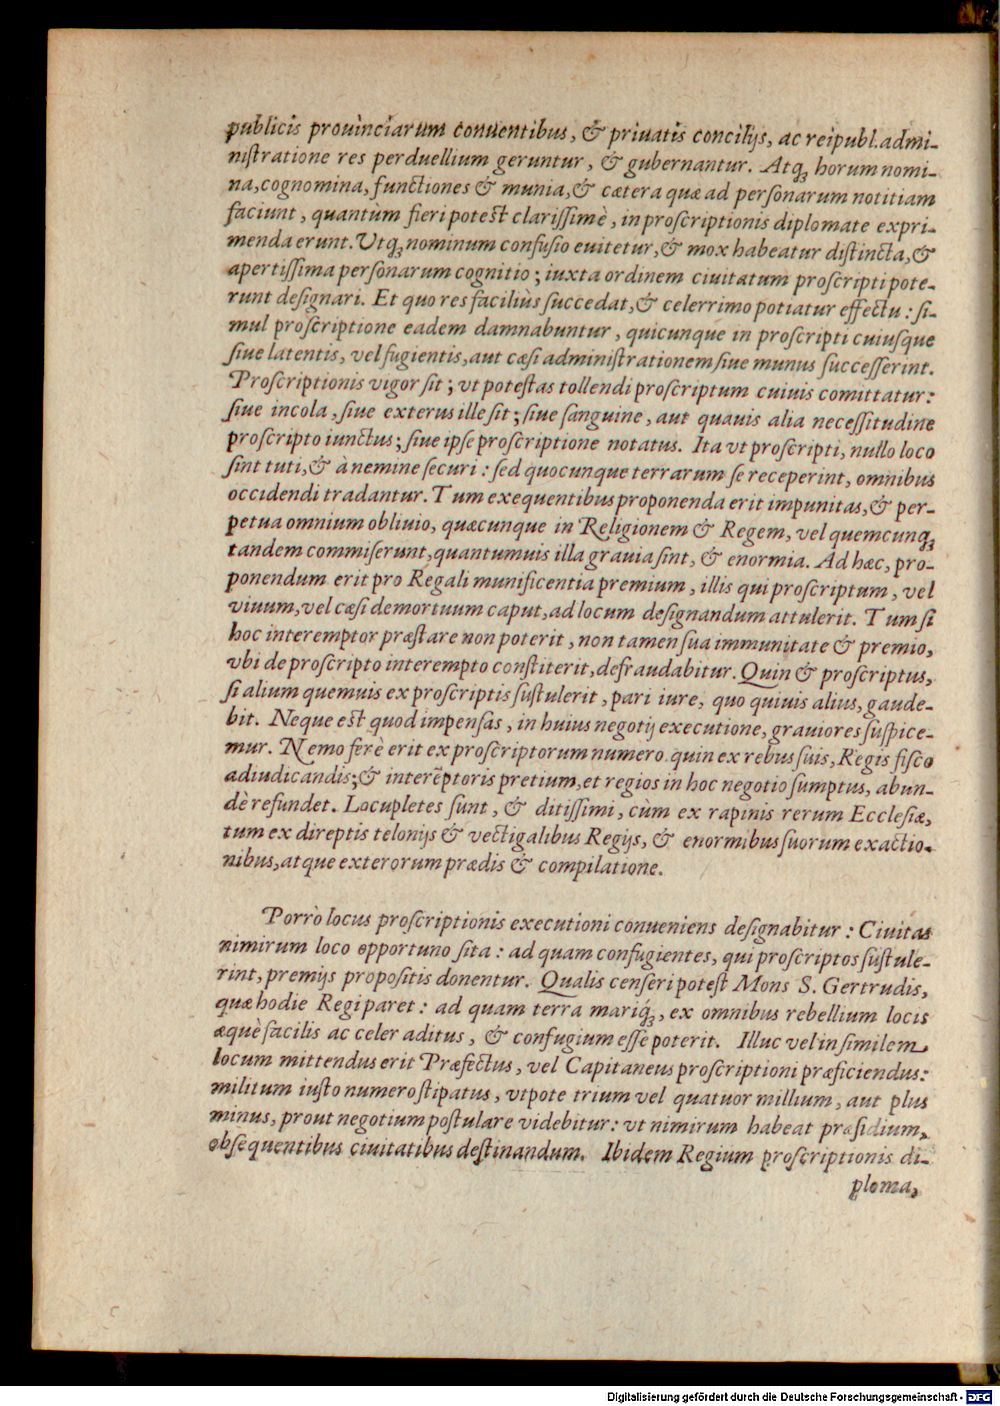 publicis prouinciarum conuentibus, & priuatis concilijs, ac reipubl. admi-
niſtratione res perduellium geruntur, & gubernantur. Atqꝫ horum nomi-
na, cognomina, functiones & munia, & cætera quæ ad perſonarum notitiam
faciunt, quantùm fieri poteſt clariſſimè, in proſcriptionis diplomate expri-
menda erunt. Vtqꝫ nominum confuſio euitetur, & mox habeatur diſtincta, &
apertiſſima perſonarum cognitio; iuxta ordinem ciuitatum proſcripti pote-
runt deſignari. Et quo res faciliùs ſuccedat, & celerrimo potiatur effectu: ſi-
mul proſcriptione eadem damnabuntur, quicunque in proſcripti cuiuſque
ſiue latentis, vel fugientis, aut cæſi adminiſtrationem ſiue munus ſucceſſerint.
Proſcriptionis vigor ſit; vt poteſtas tollendi proſcriptum cuiuis comittatur:
ſiue incola, ſiue exterus ille ſit; ſiue ſanguine, aut quauis alia neceſſitudine
proſcripto iunctus; ſiue ipſe proſcriptione notatus. Ita vt proſcripti, nullo loco
ſint tuti, & à nemine ſecuri: ſed quocunque terrarum ſe receperint, omnibus
occidendi tradantur. Tum exequentibus proponenda erit impunitas, & per-
petua omnium obliuio, quæcunque in Religionem & Regem, vel quemcunqꝫ
tandem commiſerunt, quantumuis illa grauia ſint, & enormia. Ad hæc, pro-
ponendum erit pro Regali munificentia premium, illis qui proſcriptum, vel
viuum, vel cæſi demortuum caput, ad locum deſignandum attulerit. Tum ſi
hoc interemptor præſtare non poterit, non tamen ſua immunitate & premio,
vbi de proſcripto interempto conſtiterit, defraudabitur. Quin & proſcriptus,
ſi alium quemuis ex proſcriptis ſuſtulerit, pari iure, quo quiuis alius, gaude-
bit. Neque eſt quod impenſas, in huius negotij executione, grauiores ſuſpice-
mur. Nemo ferè erit ex proſcriptorum numero quin ex rebus ſuis, Regis fiſco
adiudicandis; & interẽptoris pretium, et regios in hoc negotio ſumptus, abun-
dè refundet. Locupletes ſunt, & ditiſſimi, cùm ex rapinis rerum Eccleſiæ,
tum ex direptis telonijs & vectigalibus Regijs, & enormibus ſuorum exactio-
nibus, atque exterorum prædis & compilatione.
Porrò locus proſcriptionis executioni conueniens deſignabitur: Ciuitas
nimirum loco opportuno ſita: ad quam confugientes, qui proſcriptos ſuſtule-
rint, premijs propoſitis donentur. Qualis cenſeri poteſt Mons S. Gertrudis,
quæ hodie Regi paret: ad quam terra mariq́ꝫ, ex omnibus rebellium locis
æquè facilis ac celer aditus, & confugium eſſe poterit. Illuc vel in ſimilem
locum mittendus erit Præfectus, vel Capitaneus proſcriptioni præficiendus:
militum iuſto numero ſtipatus, vtpote trium vel quatuor millium, aut plus
minus, prout negotium poſtulare videbitur: vt nimirum habeat præſidium,
obſequentibus ciuitatibus deſtinandum. Ibidem Regium proſcriptionis di-
ploma,
Digitalisierung gefördert durch die Deutsche Forschungsgemeinschaft - DFG